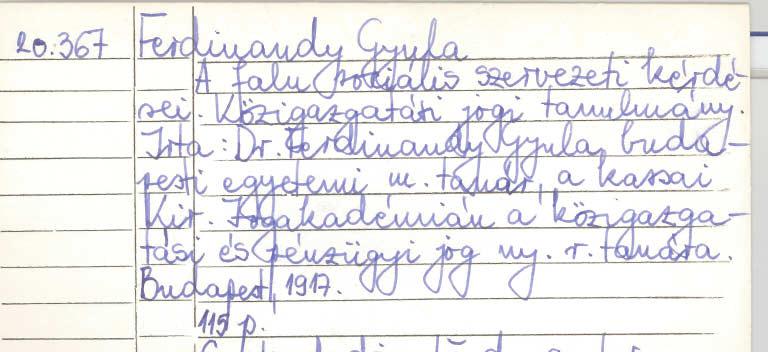 20.367 Ferdinandy Gyula
A falu szociális szervezeti kérdé-
sei. Közigazgatási jogi tanulmány.
Irta: Dr. Ferdinandy Gyula, buda-
pesti egyetemi m. tanár, a kassai
Kir. Jogakadémián a közigazga-
tási és pénzügyi jog ny. r. tanára.
Budapest, 1917.
115 p.